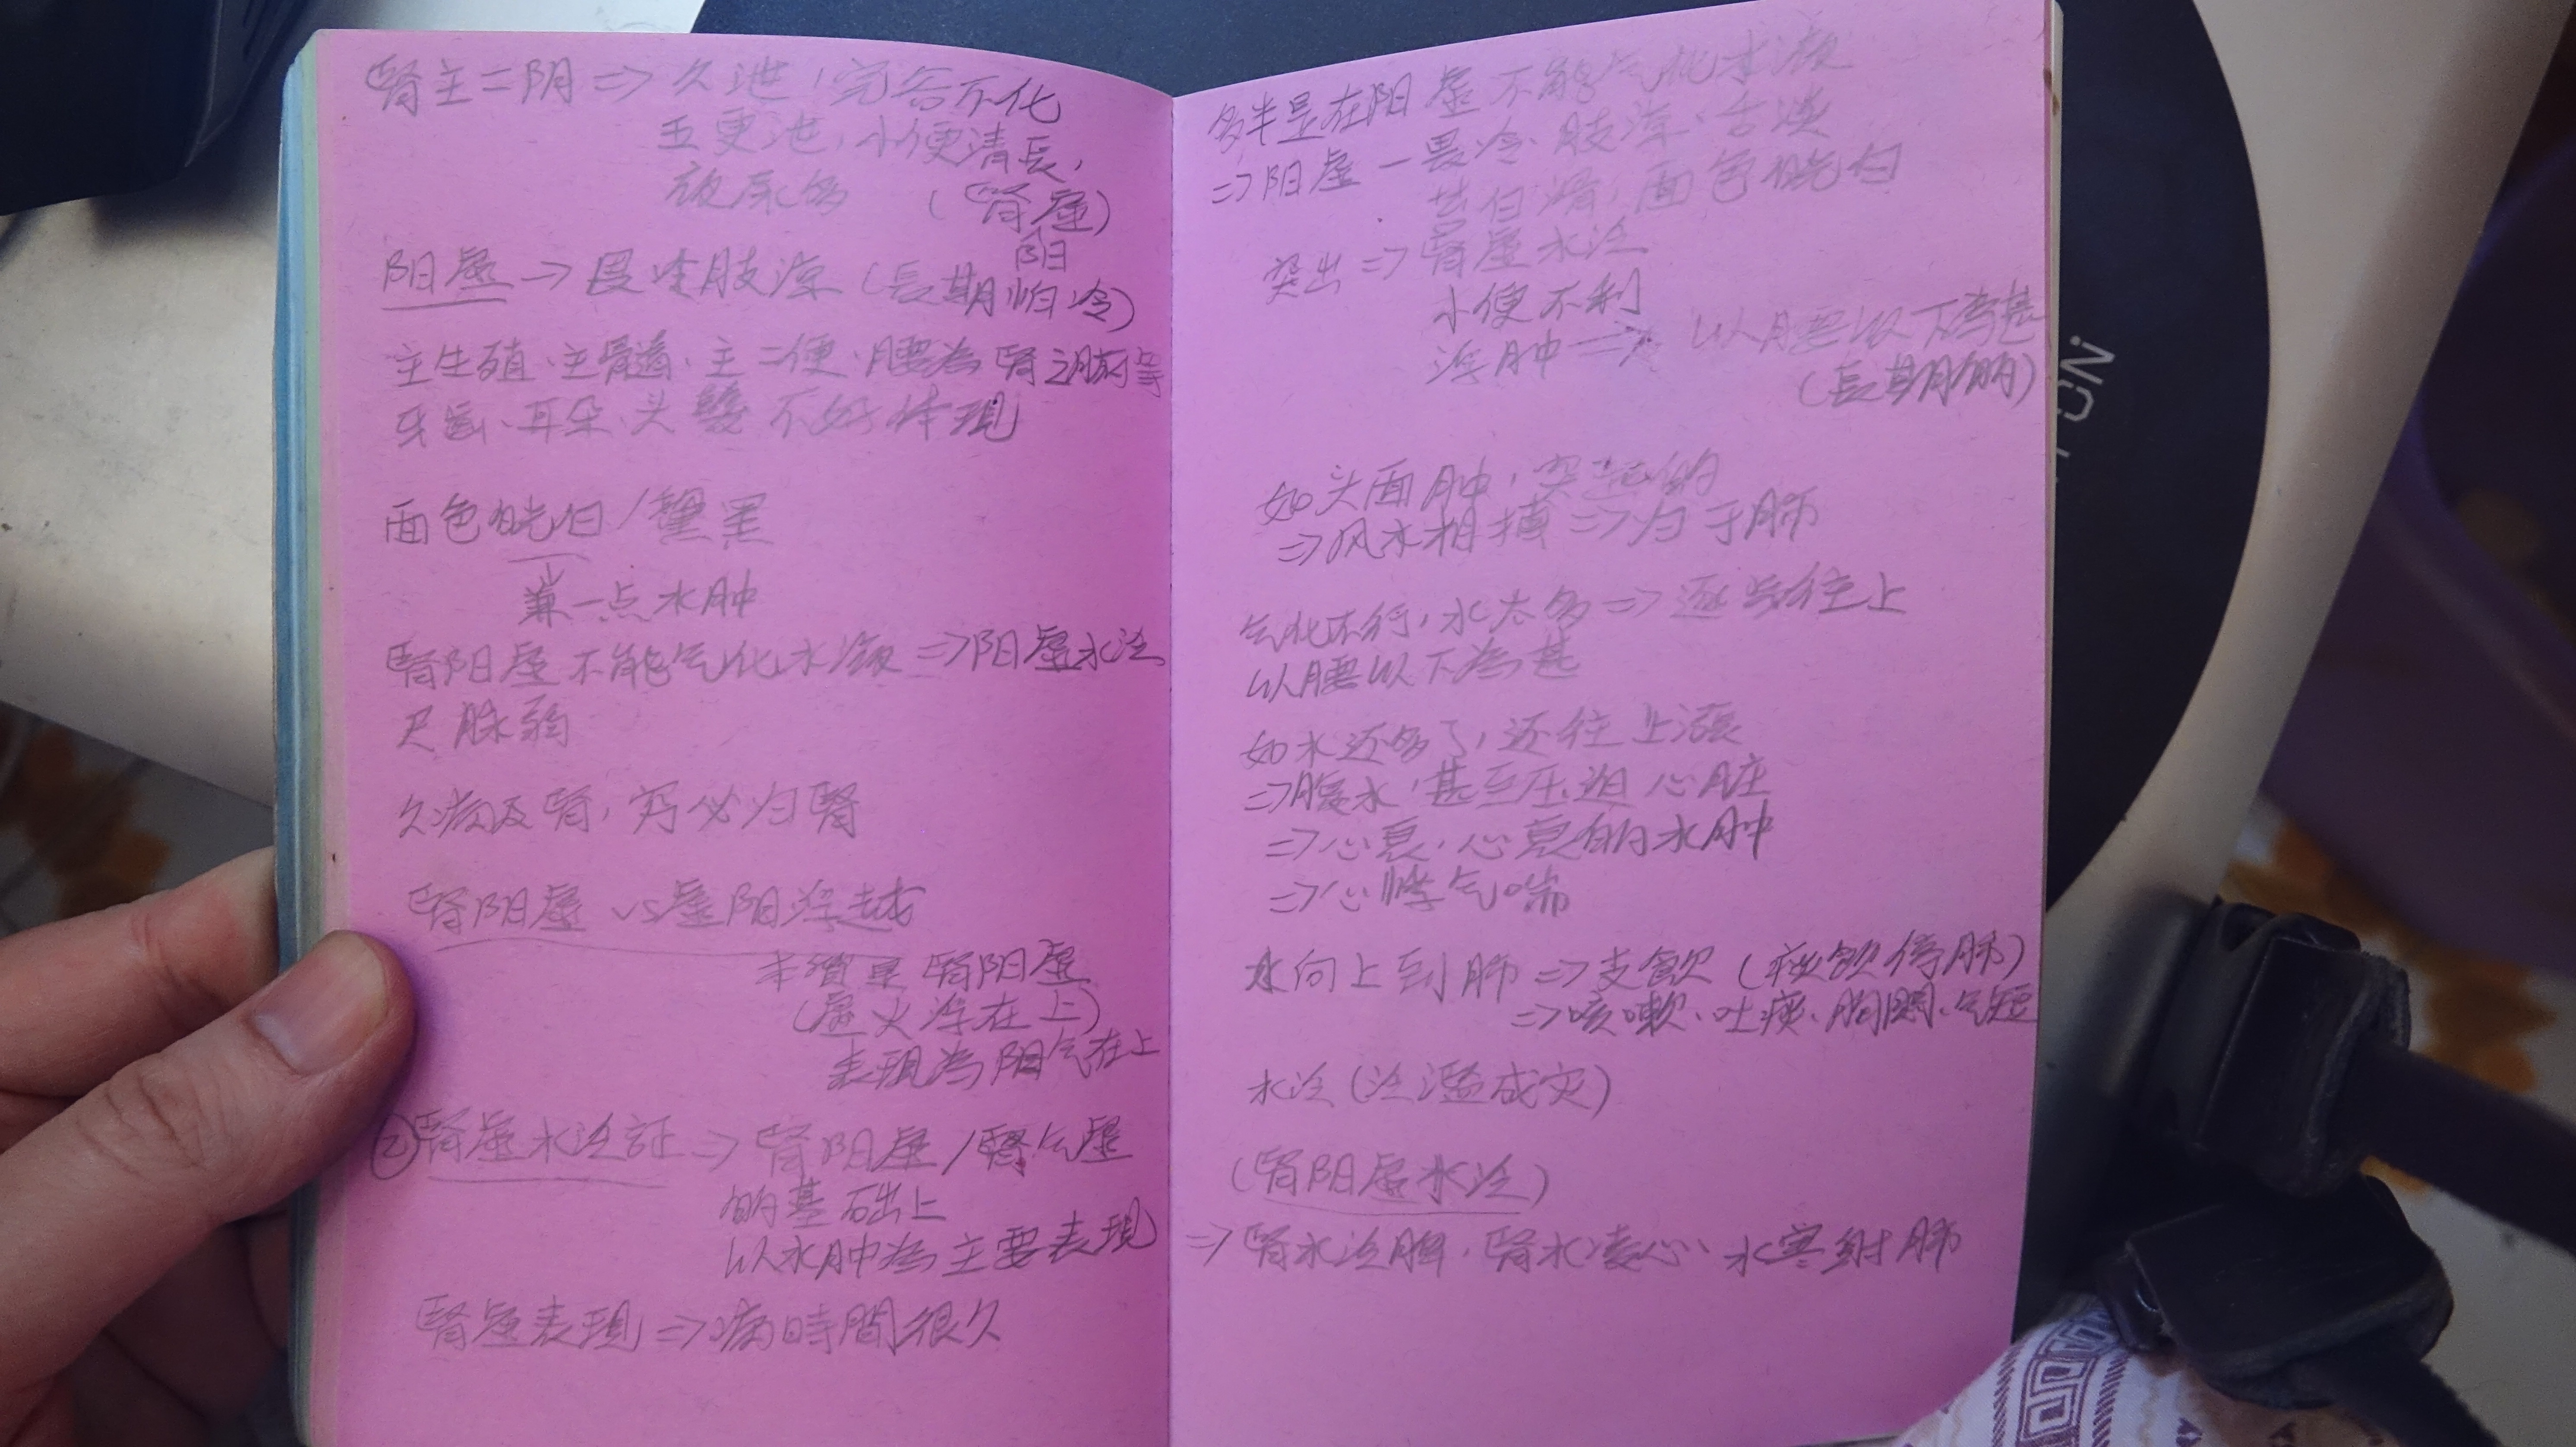 腎主二阴 => 久泄,完谷不化
五更泄,小便清長,
夜尿多 (腎虚)
阳
阳虚 -> 畏冷肢凉 (長期怕冷)
主生殖、主骨髓、主二便、腰為腎之府等
牙齒、耳朵、头髮不好体現
面色㿠白/黧黑
兼一点水肿
腎阳虚不能气化水液 => 阳虚水泛
尺脉弱
久病及腎,穷必归腎
腎阳虚 vs 虚阳浮越
本質是腎阳虚
(虚火浮在上)
表現為阳气在上
② 腎虚水泛証 => 腎阳虚/腎气虚
的基础上
以水肿為主要表現
腎虚表現 => 病時間很久
多半是在阳虚不能气化水液
=> 阳虚 - 畏冷、肢凉、舌淡
苔白滑、面色㿠白
突出 => 腎虚水泛
小便不利
浮肿 => 以腰以下為甚
(長期的)
如头面肿,突起的
=> 风水相搏 => 归于肺
气化不行,水太多 => 逐步往上
以腰以下為甚
如水还多了,还往上漲
=> 腹水,甚至压迫心脏
=> 心衰,心衰的水肿
=> 心悸气喘
水向上到肺 => 支飲 (痰飲停肺)
=> 咳嗽、吐痰、胸悶、气短
水泛 (泛濫成灾)
(腎阳虚水泛)
=> 腎水泛脾、腎水凌心、水寒射肺